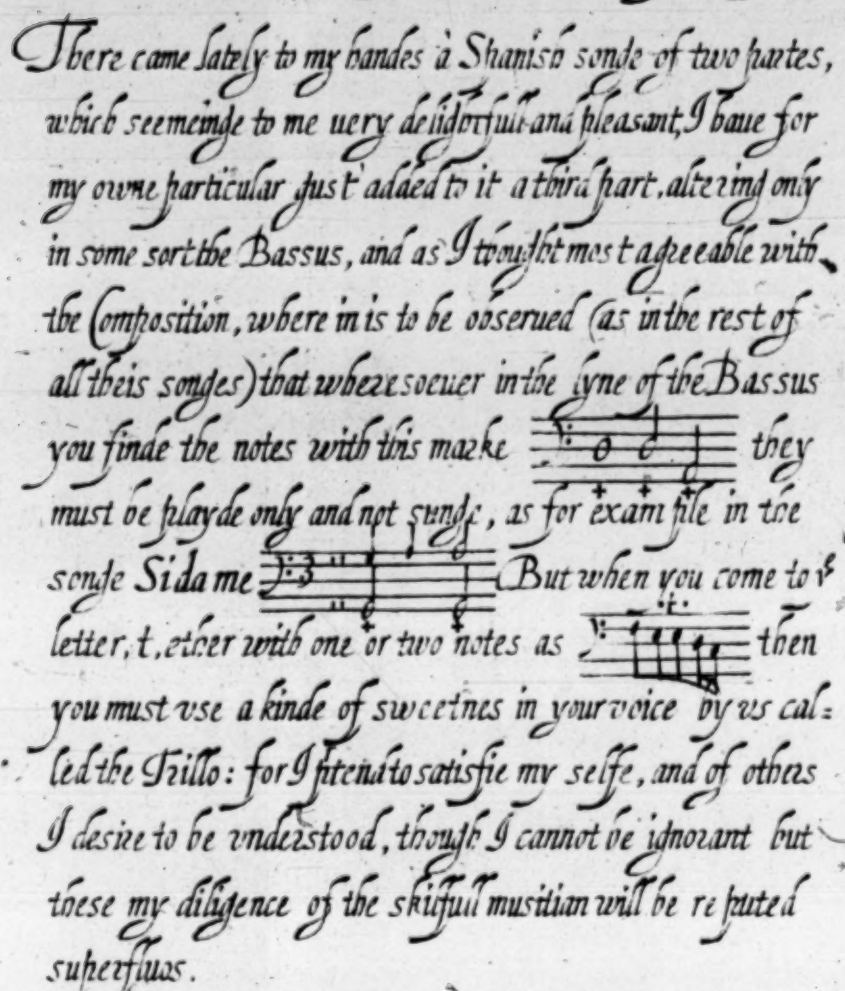 There came lately to my handes à Spanish songe of two partes,
which seemeinge to me uery delightfull and pleasant, I haue for
my owne particular gust added to it a third part, altering only
in some sort the Bassus, and as I thought most agreeable with
the Composition, where in is to be obserued (as in the rest of
all theis songes) that wheresoeuer in the lyne of the Bassus
you finde the notes with this marke they
must be playde only and not sunge, as for example in the
songe Sidame But when you come to yͤ
letter, t, ether with one or two notes as ·t· then
you must vse a kinde of sweetnes in your voice by vs cal=
led the Trillo: for I pĩtend to satisfie my selfe, and of others
I desire to be vnderstood, though I cannot be ignorant but
these my diligence of the skilfull musitian will be reputed
superfluos.